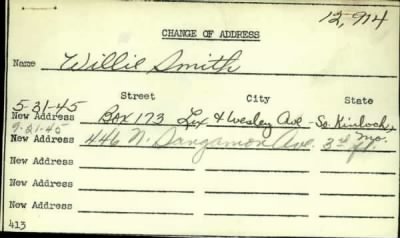 12,914
CHANGE OF ADDRESS
Name Willie Smith
Street City State
5-21-45
New Address Box 173 Lex & Wesley Ave - So. Kinloch, Mo.
9-21-45
New Address 446 N. Sangamon Ave. 3rd fl.
New Address
New Address
New Address
413